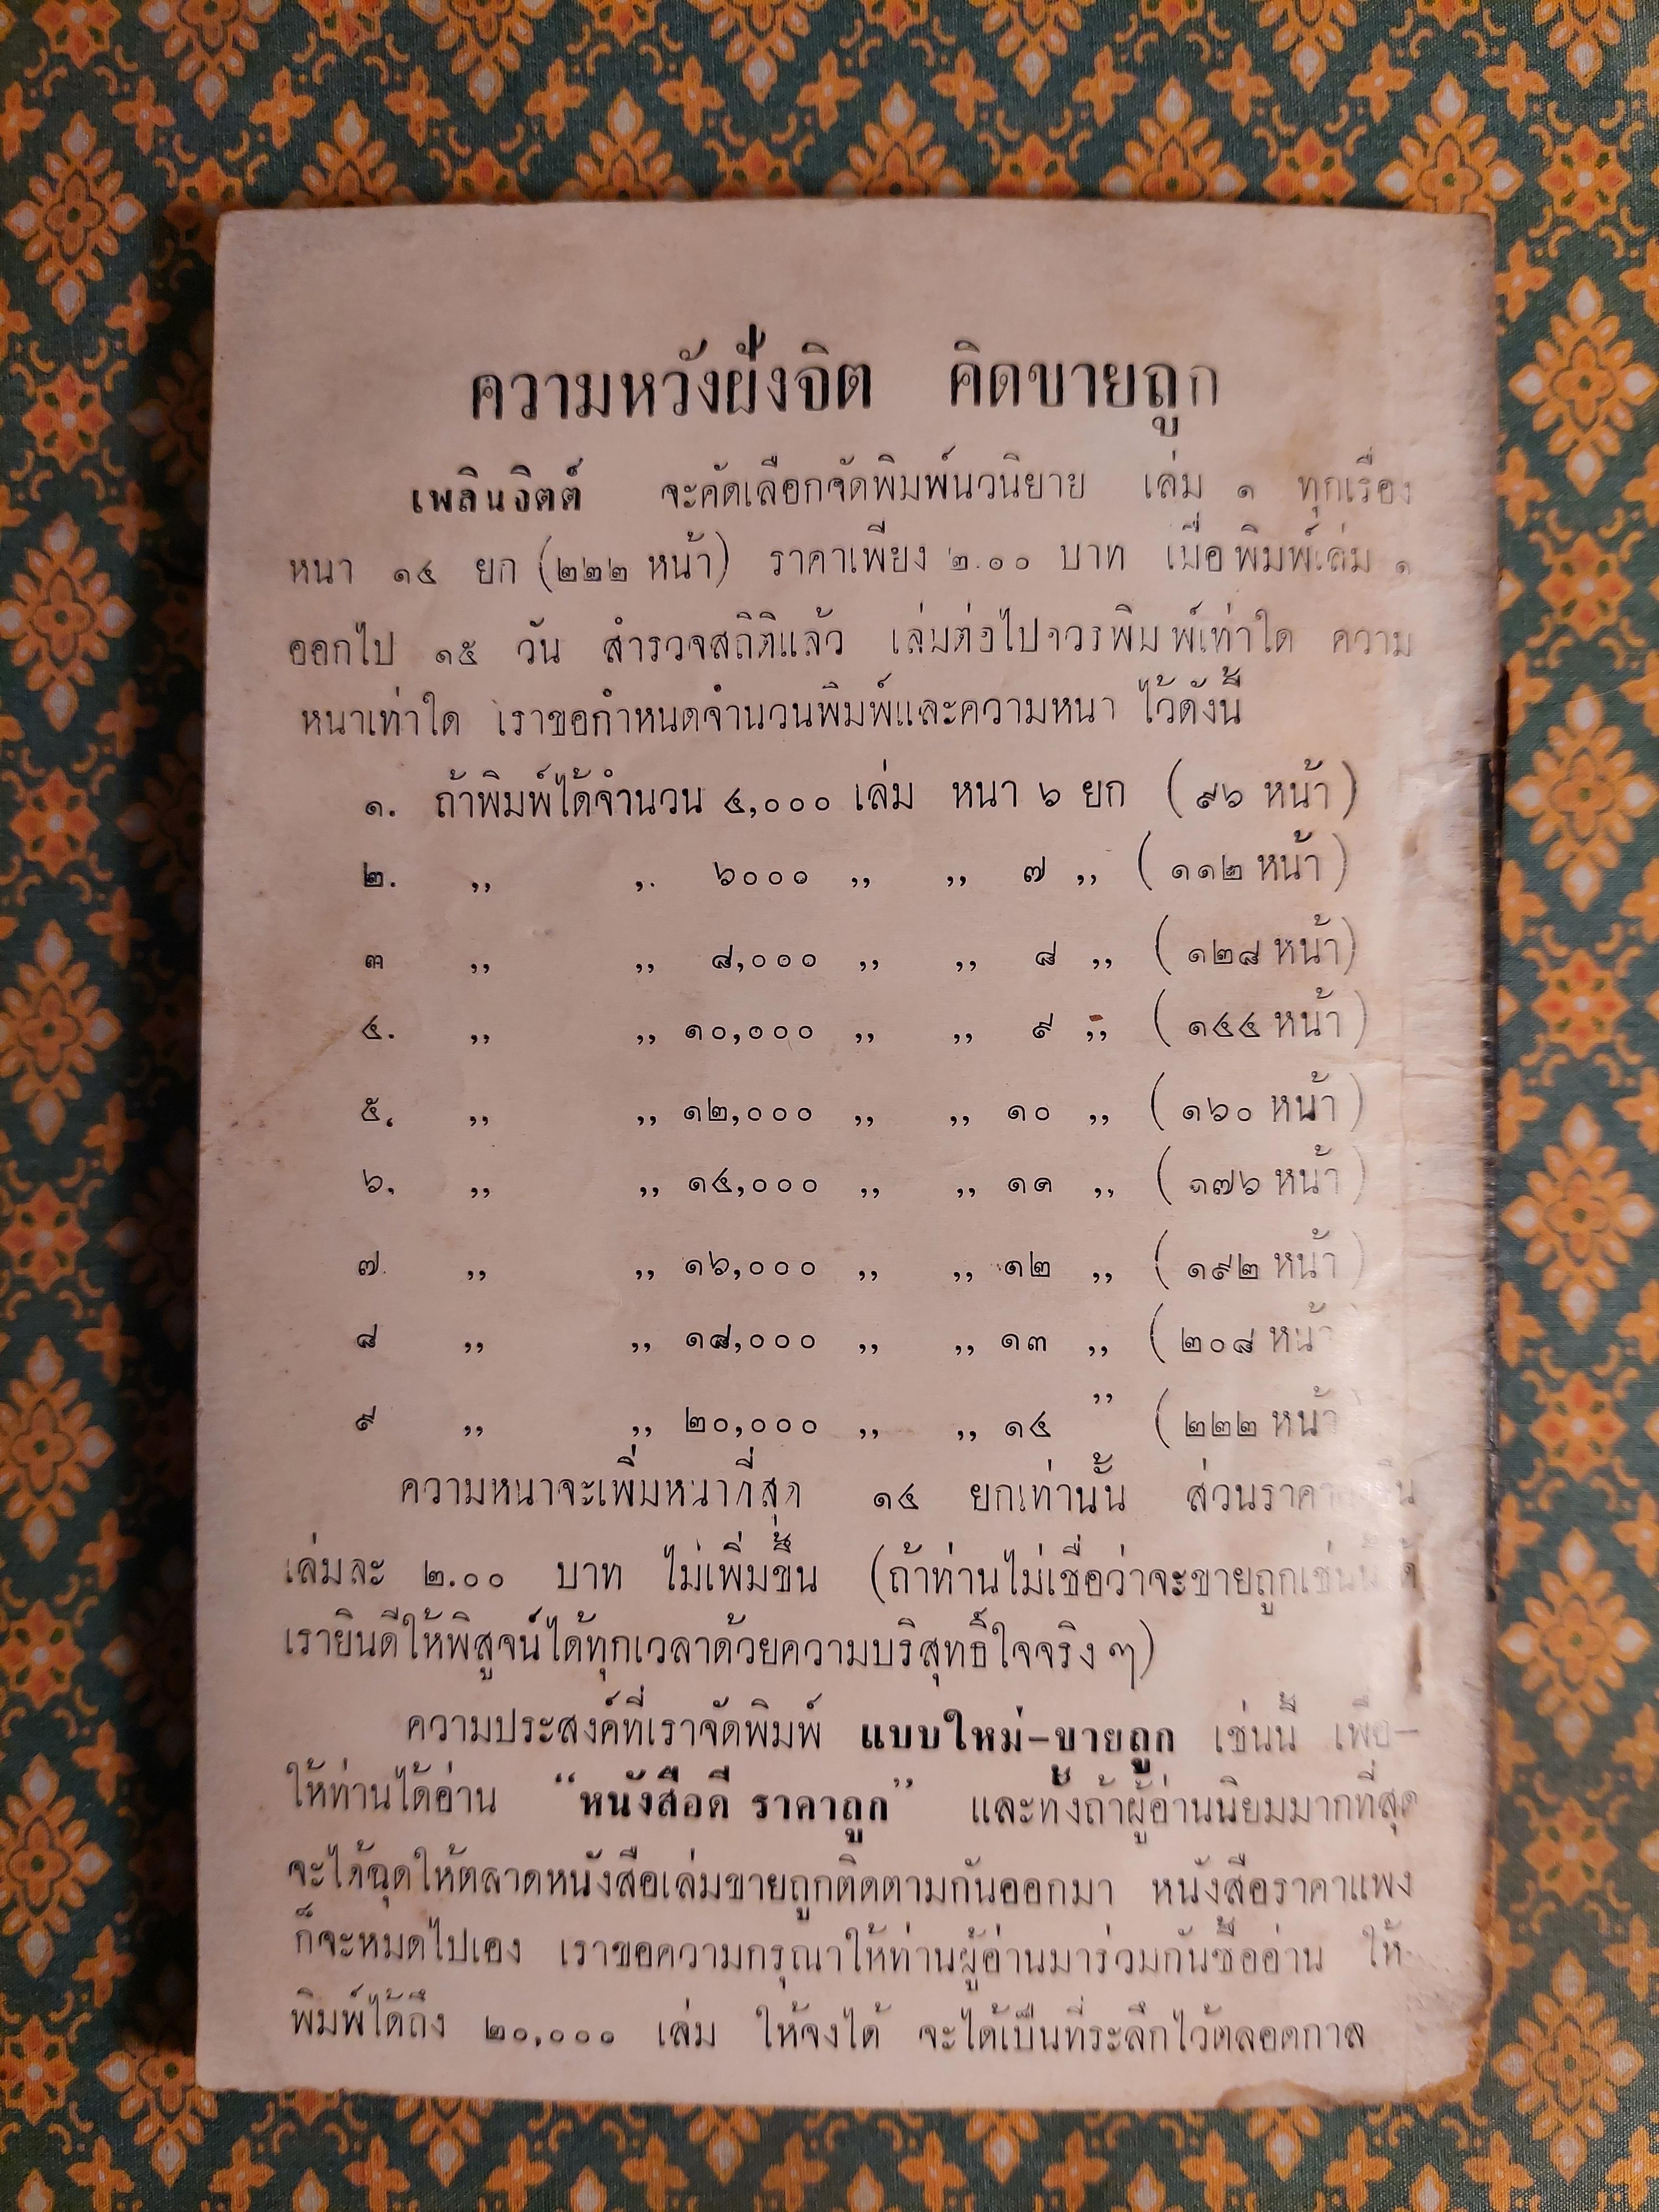 ความหวังฝังจิต คิดขายถูก
เพลินจิตต์ จะคัดเลือกจัดพิมพ์นวนิยาย เล่ม ๑ ทุกเรื่อง
หนา ๑๔ ยก (๒๒๒ หน้า) ราคาเพียง ๒.๐๐ บาท เมื่อพิมพ์เล่ม ๑
ออกไป ๑๕ วัน สำรวจสถิติแล้ว เล่มต่อไปควรพิมพ์เท่าใด ความ
หนาเท่าใด เราขอกำหนดจำนวนพิมพ์และความหนา ไว้ดังนี้
๑. ถ้าพิมพ์ได้จำนวน ๔,๐๐๐ เล่ม หนา ๖ ยก (๙๖ หน้า)
๒. ,, ,. ๖๐๐๐ ,, ,, ๗ ,, (๑๑๒ หน้า)
๓ ,, ,, ๘,๐๐๐ ,, ,, ๘ ,, (๑๒๘ หน้า)
๔. ,, ,, ๑๐,๐๐๐ ,, ,, ๙ ,, (๑๔๔ หน้า)
๕. ,, ,, ๑๒,๐๐๐ ,, ,, ๑๐ ,, (๑๖๐ หน้า)
๖. ,, ,, ๑๔,๐๐๐ ,, ,, ๑๑ ,, (๑๗๖ หน้า)
๗. ,, ,, ๑๖,๐๐๐ ,, ,, ๑๒ ,, (๑๙๒ หน้า)
๘ ,, ,, ๑๘,๐๐๐ ,, ,, ๑๓ ,, (๒๐๘ หน้า
๙ ,, ,, ๒๐,๐๐๐ ,, ,, ๑๔ ,, (๒๒๒ หน้า
ความหนาจะเพิ่มหนาที่สุด ๑๔ ยกเท่านั้น ส่วนราคา
เล่มละ ๒.๐๐ บาท ไม่เพิ่มขึ้น (ถ้าท่านไม่เชื่อว่าจะขายถูกเช่นนี้ได้
เรายินดีให้พิสูจน์ได้ทุกเวลาด้วยความบริสุทธิ์ใจจริง ๆ)
ความประสงค์ที่เราจัดพิมพ์ แบบใหม่-ขายถูก เช่นนี้ เพื่อ-
ให้ท่านได้อ่าน "หนังสือดี ราคาถูก" และทั้งถ้าผู้อ่านนิยมมากที่สุด
จะได้ฉุดให้ตลาดหนังสือเล่มขายถูกติดตามกันออกมา หนังสือราคาแพง
ก็จะหมดไปเอง เราขอความกรุณาให้ท่านผู้อ่านมาร่วมกันซื้ออ่าน ให้
พิมพ์ได้ถึง ๒๐,๐๐๐ เล่ม ให้จงได้ จะได้เป็นที่ระลึกไว้ตลอดกาล